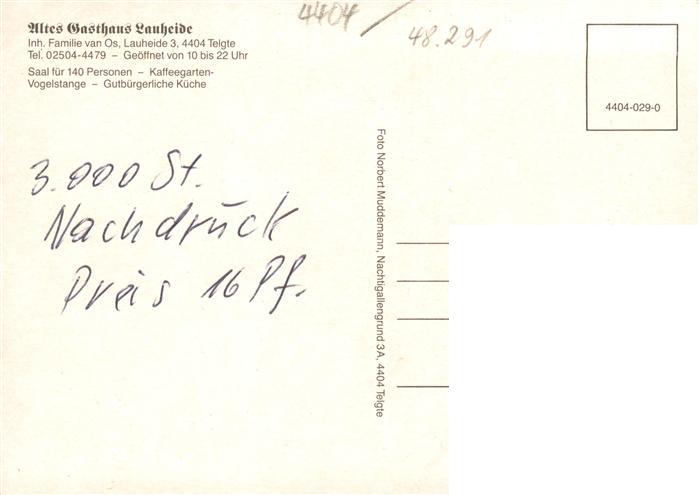 Altes Gasthaus Lauheide
Inh. Familie van Os, Lauheide 3, 4404 Telgte
Tel. 02504-4479 – Geöffnet von 10 bis 22 Uhr
Saal für 140 Personen – Kaffeegarten-
Vogelstange – Gutbürgerliche Küche
4404/
48.291
4404-029-0
3.000 St.
Nachdruck
Preis 16 Pf.
Foto Norbert Muddemann, Nachtigallengrund 3A, 4404 Telgte